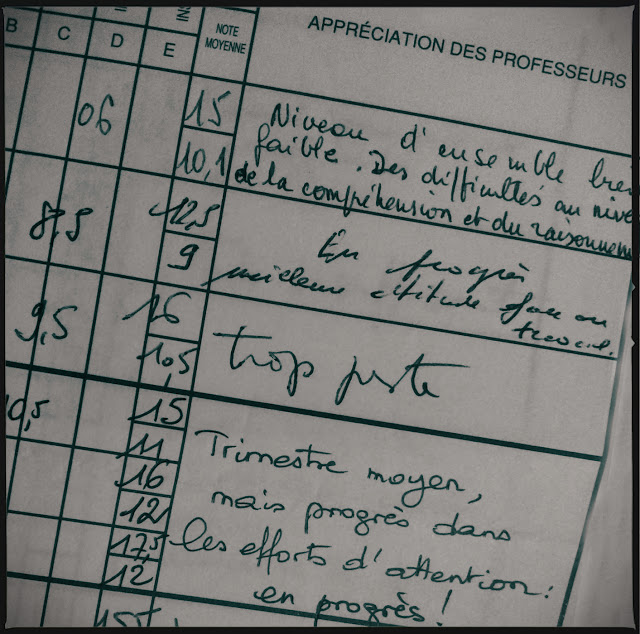 APPRÉCIATION DES PROFESSEURS
NOTE
MOYENNE
B C D E
06 15
10,1
Niveau d'ensemble bie
faible. Des difficultés au nive
de la compréhension et du raisonneme
8,5 12,5
9
En progrès
meilleure attitude face au
travail.
9,5 16
10,5
trop juste
0,5 15
11
16
12
17,5
12
Trimestre moyen,
mais progrès dans
les efforts d'attention :
en progrès !